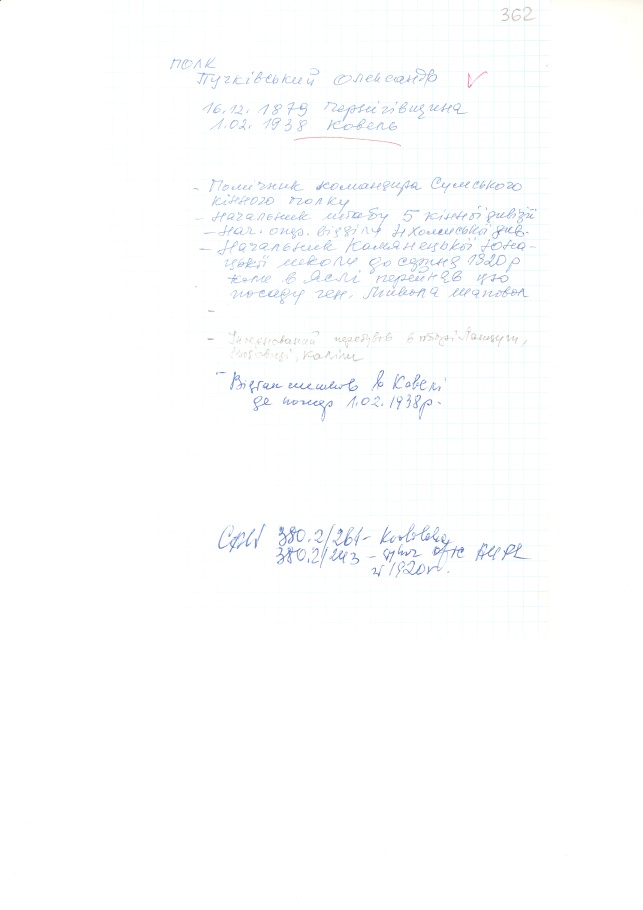 362
ПОЛК
Пучківський Олександр
16.12.1879 Чернігівщина
1.02.1938 Ковель
- Помічник командира Сумського
кінного полку
- Начальник штабу 5 кінної дивізії
- Нач. опер. відділу Холмської див.
- Начальник Камянецької юна-
цької школи до серпня 1920р
коли в Яслі перейняв цю
посаду ген. Микола Шаповал
-
- Інтернований перебував в таборі Ланцути,
Каліш
- Відтак мешкав в Ковелі
де помер 1.02.1938р.
CAW 380.2/261-
380.2/243 -
z 1920r.